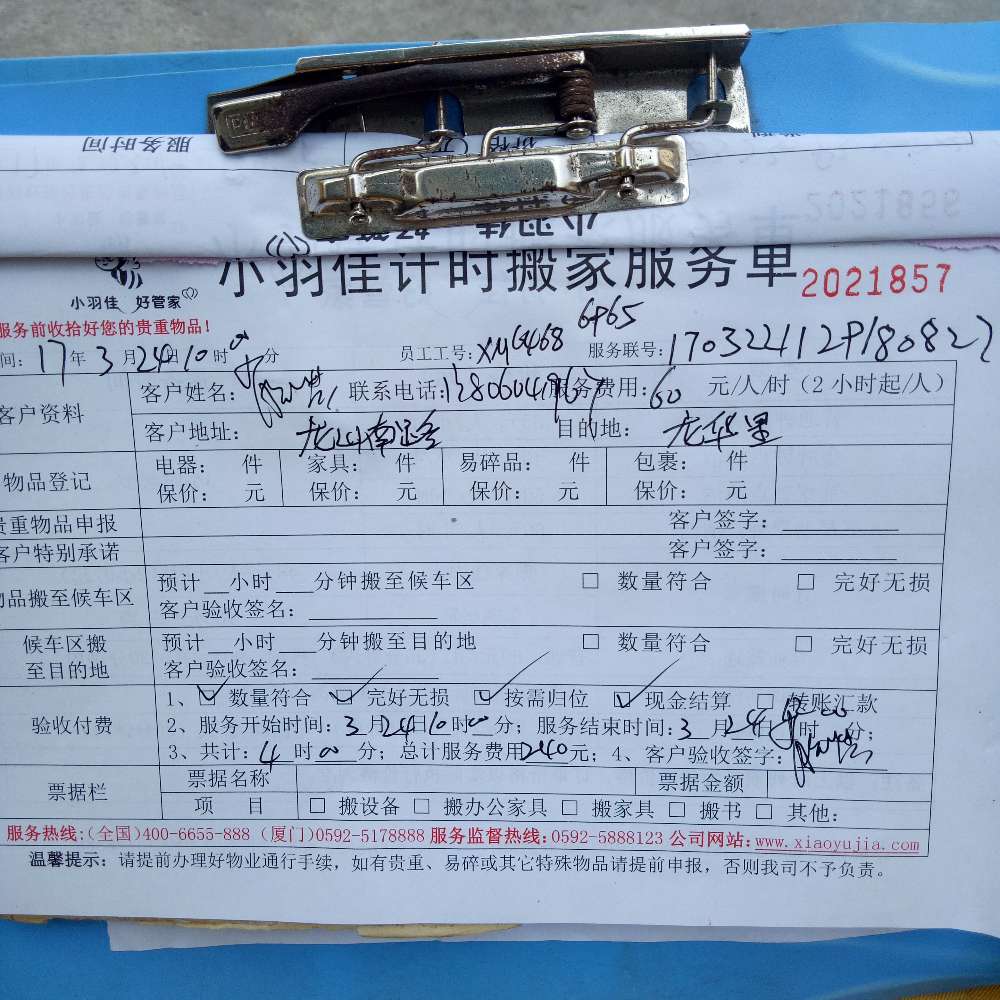 服务时间
2021856
小羽佳 好管家
小羽佳计时搬家服务单 2021857
服务前收拾好您的贵重物品!
间: 17年3月24日10时00分 员工工号: XM6468 6965 服务联号: 17032241129180822
客户资料 客户姓名: 联系电话: 服务费用: 60 元/人/时 (2小时起/人)
客户地址: 龙山南路 目的地: 龙华里
物品登记 电器: 件 家具: 件 易碎品: 件 包裹: 件
保价: 元 保价: 元 保价: 元 保价: 元
贵重物品申报 客户签字:
客户特别承诺 客户签字:
物品搬至候车区 预计__小时___分钟搬至候车区 □ 数量符合 □ 完好无损
客户验收签名:
候车区搬至目的地 预计__小时___分钟搬至目的地 □ 数量符合 □ 完好无损
客户验收签名:
验收付费 1、☑ 数量符合 ☑ 完好无损 ☑ 按需归位 ☑ 现金结算 □ 转账汇款
2、服务开始时间: 3月24日10时00分; 服务结束时间: 3月24日 时00分;
3、共计: 4时00分; 总计服务费用240元; 4、客户验收签字:
票据栏 票据名称 票据金额
项 目 □ 搬设备 □ 搬办公家具 □ 搬家具 □ 搬书 □ 其他:
服务热线:(全国)400-6655-888 (厦门)0592-5178888 服务监督热线:0592-5888123 公司网站:www.xiaoyujia.com
温馨提示: 请提前办理好物业通行手续, 如有贵重、易碎或其它特殊物品请提前申报, 否则我司不予负责。